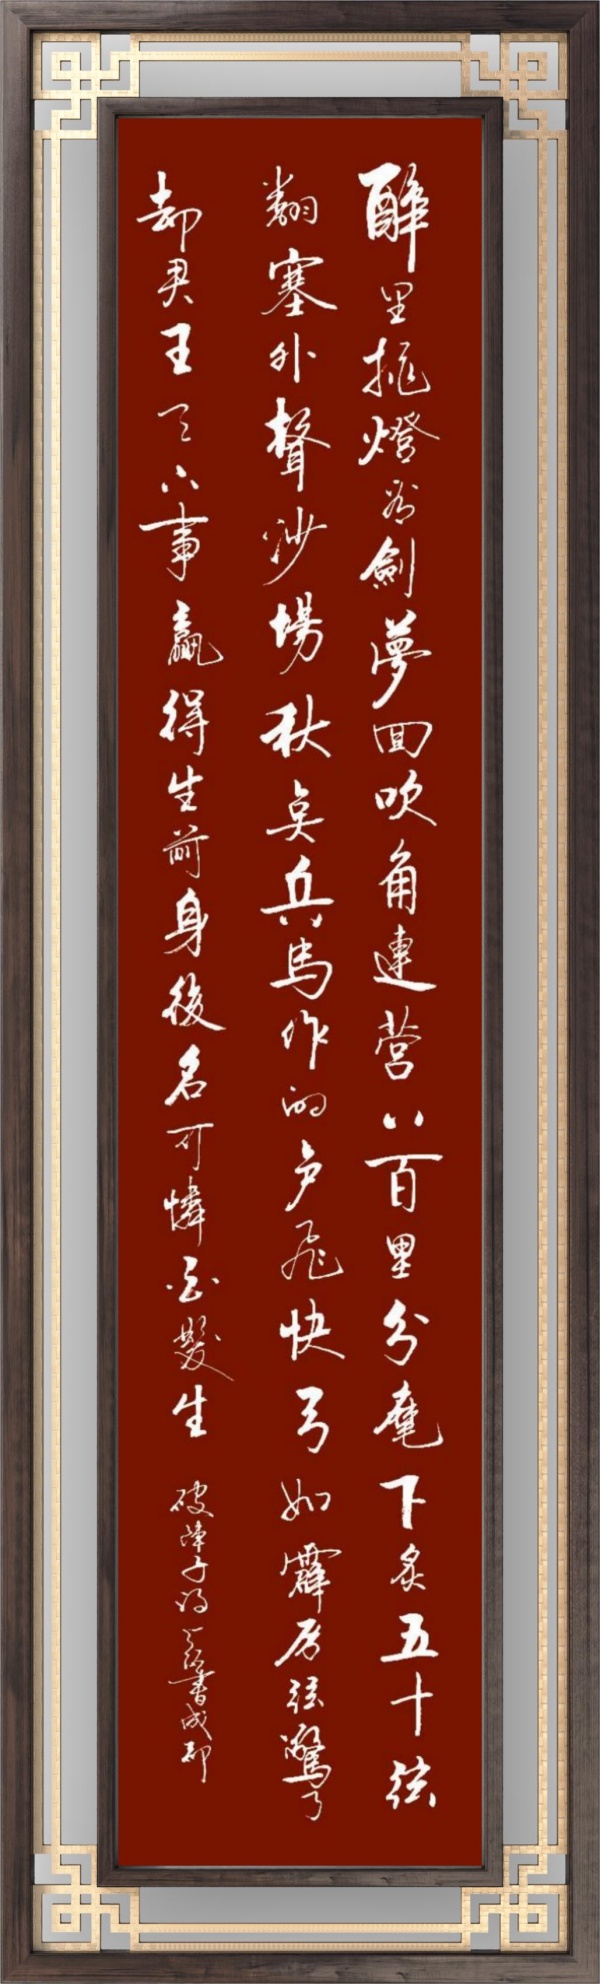 醉里挑燈看劍夢回吹角連营八百里分麾下炙五十弦
翻塞外聲沙場秋奌兵馬作的卢飛快弓如霹雳弦驚了
却君王天下事贏得生前身後名可憐白髮生
破陣子詞書成都